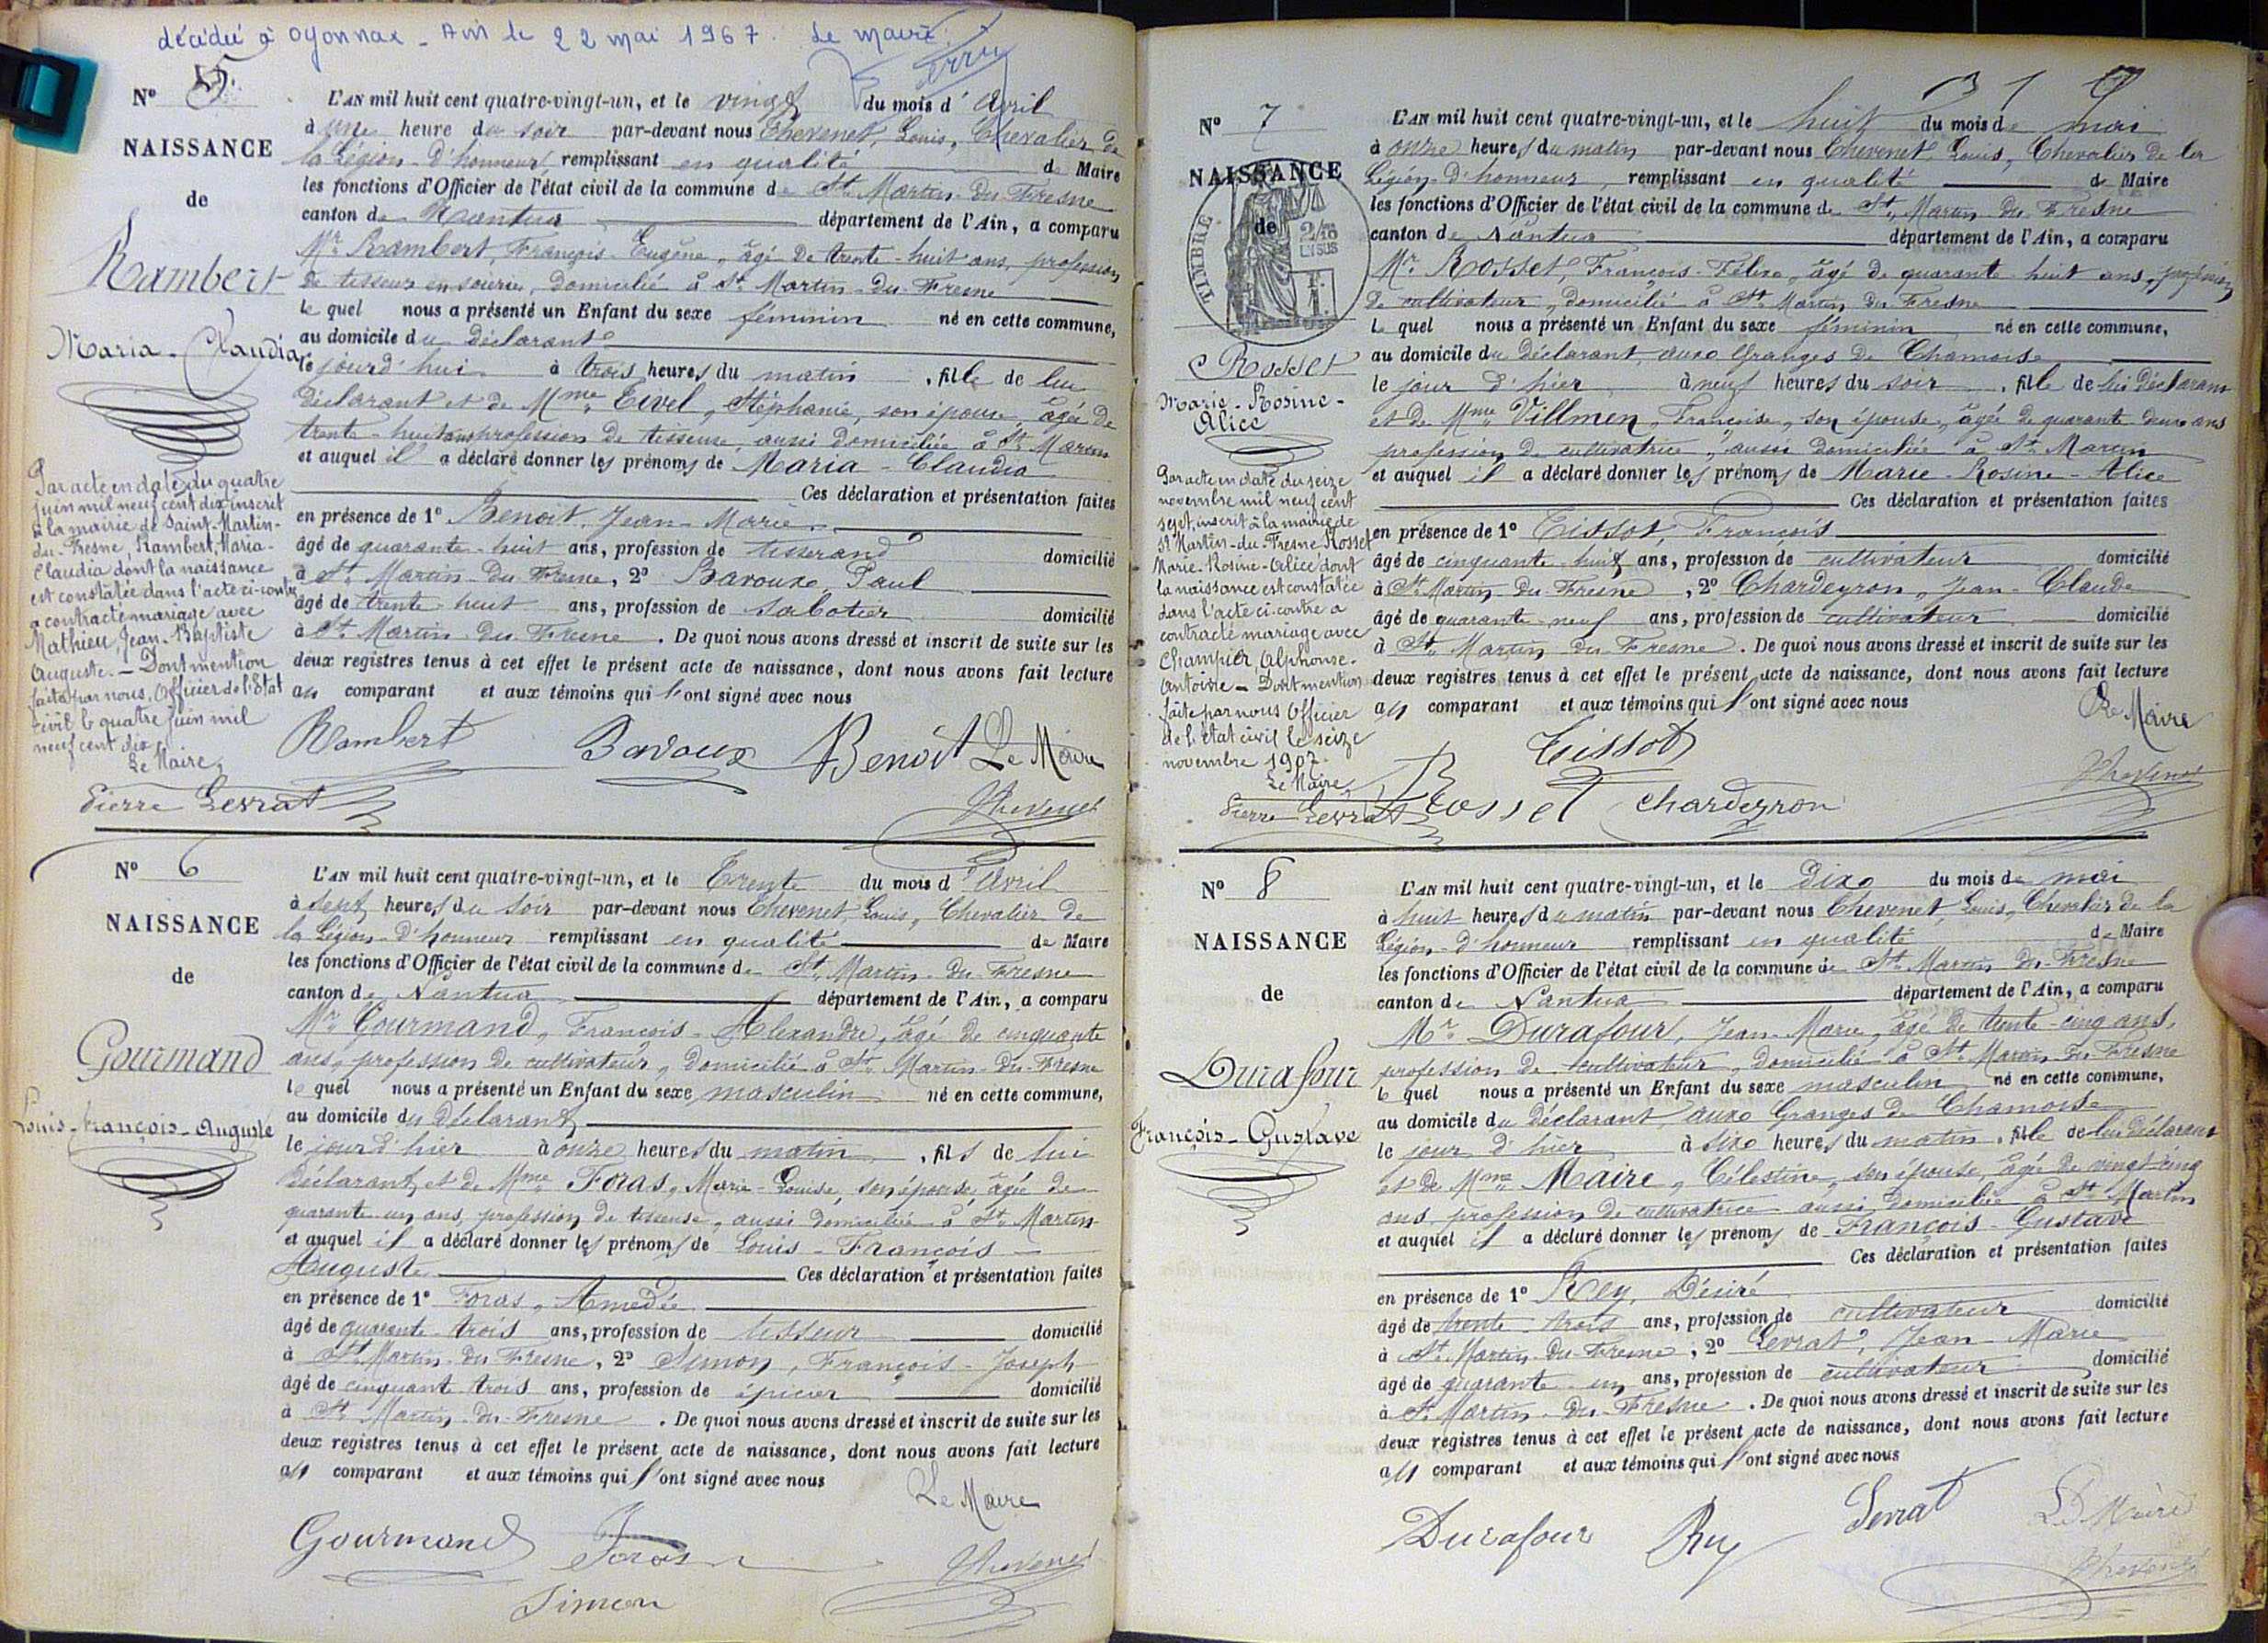 décédée à Oyonnax - Ain le 22 mai 1967. Le maire
N° 5
NAISSANCE
de
Rambert
Maria-Claudia
L'AN mil huit cent quatre-vingt-un, et le vingt du mois d'Avril
à une heure du soir par-devant nous Thevenet, Louis, Chevalier de
la Légion-d'honneur, remplissant en qualité de Maire
les fonctions d'Officier de l'état civil de la commune de St Martin-du-Fresne
canton de Nantua département de l'Ain, a comparu
Mr Rambert, François-Eugène, âgé de trente-huit ans, profession
de tisseur en soierie, domicilié à St Martin-du-Fresne
lequel nous a présenté un Enfant du sexe féminin né en cette commune,
au domicile du déclarant
le jourd'hui à trois heures du matin, fille de lui
déclarant et de Mme Eivel, Stéphanie, son épouse, âgée de
trente-huit ans profession de tisseuse, aussi domiciliée à St Martin
et auquel il a déclaré donner les prénoms de Maria-Claudia
Ces déclaration et présentation faites
en présence de 1° Benoit, Jean-Marie
âgé de quarante-huit ans, profession de tisserand domicilié
à St Martin-du-Fresne, 2° Baroux, Paul
âgé de trente-huit ans, profession de sabotier domicilié
à St Martin-du-Fresne. De quoi nous avons dressé et inscrit de suite sur les
deux registres tenus à cet effet le présent acte de naissance, dont nous avons fait lecture
au comparant et aux témoins qui l'ont signé avec nous
Par acte en date du quatre
juin mil neuf cent dix inscrit
à la mairie de Saint-Martin-
du-Fresne, Rambert, Maria-
Claudia dont la naissance
est constatée dans l'acte ci-contre
a contracté mariage avec
Mathieu, Jean-Baptiste
Auguste. - Dont mention
faite par nous, Officier de l'Etat
civil le quatre juin mil
neuf cent dix
Le Maire,
Pierre Levrat
Rambert Baroux Benoit Le Maire
Thevenet
N° 6
NAISSANCE
de
Gourmand
Louis-François-Auguste
L'AN mil huit cent quatre-vingt-un, et le Trente du mois d'Avril
à sept heures du soir par-devant nous Thevenet, Louis, Chevalier de
la Légion-d'honneur remplissant en qualité de Maire
les fonctions d'Officier de l'état civil de la commune de St Martin-du-Fresne
canton de Nantua département de l'Ain, a comparu
Mr Gourmand, François-Alexandre, âgé de cinquante
ans, profession de cultivateur, domicilié à St Martin-du-Fresne
lequel nous a présenté un Enfant du sexe masculin né en cette commune,
au domicile du déclarant
le jour d'hier à onze heures du matin, fils de lui
déclarant et de Mme Foras, Marie-Louise, son épouse, âgée de
quarante-un ans, profession de tisseuse, aussi domiciliée à St Martin
et auquel il a déclaré donner les prénoms de Louis-François-
Auguste Ces déclaration et présentation faites
en présence de 1° Foras, Amédée
âgé de quarante-trois ans, profession de tisseur domicilié
à St Martin-du-Fresne, 2° Simon, François-Joseph
âgé de cinquante-trois ans, profession de épicier domicilié
à St Martin-du-Fresne. De quoi nous avons dressé et inscrit de suite sur les
deux registres tenus à cet effet le présent acte de naissance, dont nous avons fait lecture
au comparant et aux témoins qui l'ont signé avec nous
Le Maire
Gourmand Foras Thevenet
Simon
N° 7
NAISSANCE
de
TIMBRE
Rosset
Marie-Rosine-
Alice
L'AN mil huit cent quatre-vingt-un, et le huit du mois de mai
à onze heures du matin par-devant nous Thevenet, Louis, Chevalier de la
Légion-d'honneur, remplissant en qualité de Maire
les fonctions d'Officier de l'état civil de la commune de St Martin-du-Fresne
canton de Nantua département de l'Ain, a comparu
Mr Rosset, François-Félix, âgé de quarante-huit ans, profession
de cultivateur, domicilié à St Martin-du-Fresne
lequel nous a présenté un Enfant du sexe féminin né en cette commune,
au domicile du déclarant, aux Granges de Chamoise
le jour d'hier à neuf heures du soir, fille de lui déclarant
et de Mme Villmen, Françoise, son épouse, âgée de quarante-deux ans
profession de cultivatrice, aussi domiciliée à St Martin
et auquel il a déclaré donner les prénoms de Marie-Rosine-Alice
Ces déclaration et présentation faites
en présence de 1° Tissot, François
âgé de cinquante-huit ans, profession de cultivateur domicilié
à St Martin-du-Fresne, 2° Chardeyron, Jean-Claude
âgé de quarante-neuf ans, profession de cultivateur domicilié
à St Martin-du-Fresne. De quoi nous avons dressé et inscrit de suite sur les
deux registres tenus à cet effet le présent acte de naissance, dont nous avons fait lecture
au comparant et aux témoins qui l'ont signé avec nous
Par acte en date du seize
novembre mil neuf cent
sept, inscrit à la mairie de
St Martin-du-Fresne Rosset
Marie-Rosine-Alice dont
la naissance est constatée
dans l'acte ci-contre a
contracté mariage avec
Champier, Alphonse-
Antoine - Dont mention
faite par nous Officier
de l'état civil le seize
novembre 1907.
Le Maire,
Pierre Levrat
Le Maire
Tissot
Thevenet
Rosset Chardeyron
N° 8
NAISSANCE
de
Durafour
François-Gustave
L'AN mil huit cent quatre-vingt-un, et le Dix du mois de mai
à huit heures du matin par-devant nous Thevenet, Louis, Chevalier de la
Légion-d'honneur remplissant en qualité de Maire
les fonctions d'Officier de l'état civil de la commune de St Martin-du-Fresne
canton de Nantua département de l'Ain, a comparu
Mr Durafour, Jean-Marie, âgé de trente-cinq ans,
profession de cultivateur, domicilié à St Martin-du-Fresne
lequel nous a présenté un Enfant du sexe masculin né en cette commune,
au domicile du déclarant, aux Granges de Chamoise
le jour d'hier à six heures du matin, fils de lui déclarant
et de Mme Maire, Célestine, son épouse, âgée de vingt-cinq
ans, profession de cultivatrice aussi domiciliée à St Martin
et auquel il a déclaré donner les prénoms de François-Gustave
Ces déclaration et présentation faites
en présence de 1° Rey, Désiré
âgé de trente-trois ans, profession de cultivateur domicilié
à St Martin-du-Fresne, 2° Levrat, Jean-Marie
âgé de quarante-un ans, profession de cultivateur domicilié
à St Martin-du-Fresne. De quoi nous avons dressé et inscrit de suite sur les
deux registres tenus à cet effet le présent acte de naissance, dont nous avons fait lecture
au comparant et aux témoins qui l'ont signé avec nous
Durafour Rey Levrat Le Maire
Thevenet